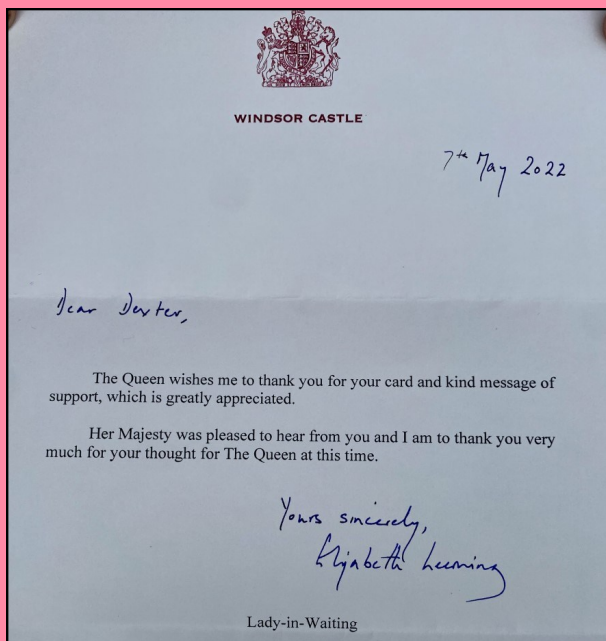 WINDSOR CASTLE
7th May 2022
Dear Dexter,
The Queen wishes me to thank you for your card and kind message of
support, which is greatly appreciated.
Her Majesty was pleased to hear from you and I am to thank you very
much for your thought for The Queen at this time.
Yours sincerely,
Elizabeth Leeming
Lady-in-Waiting